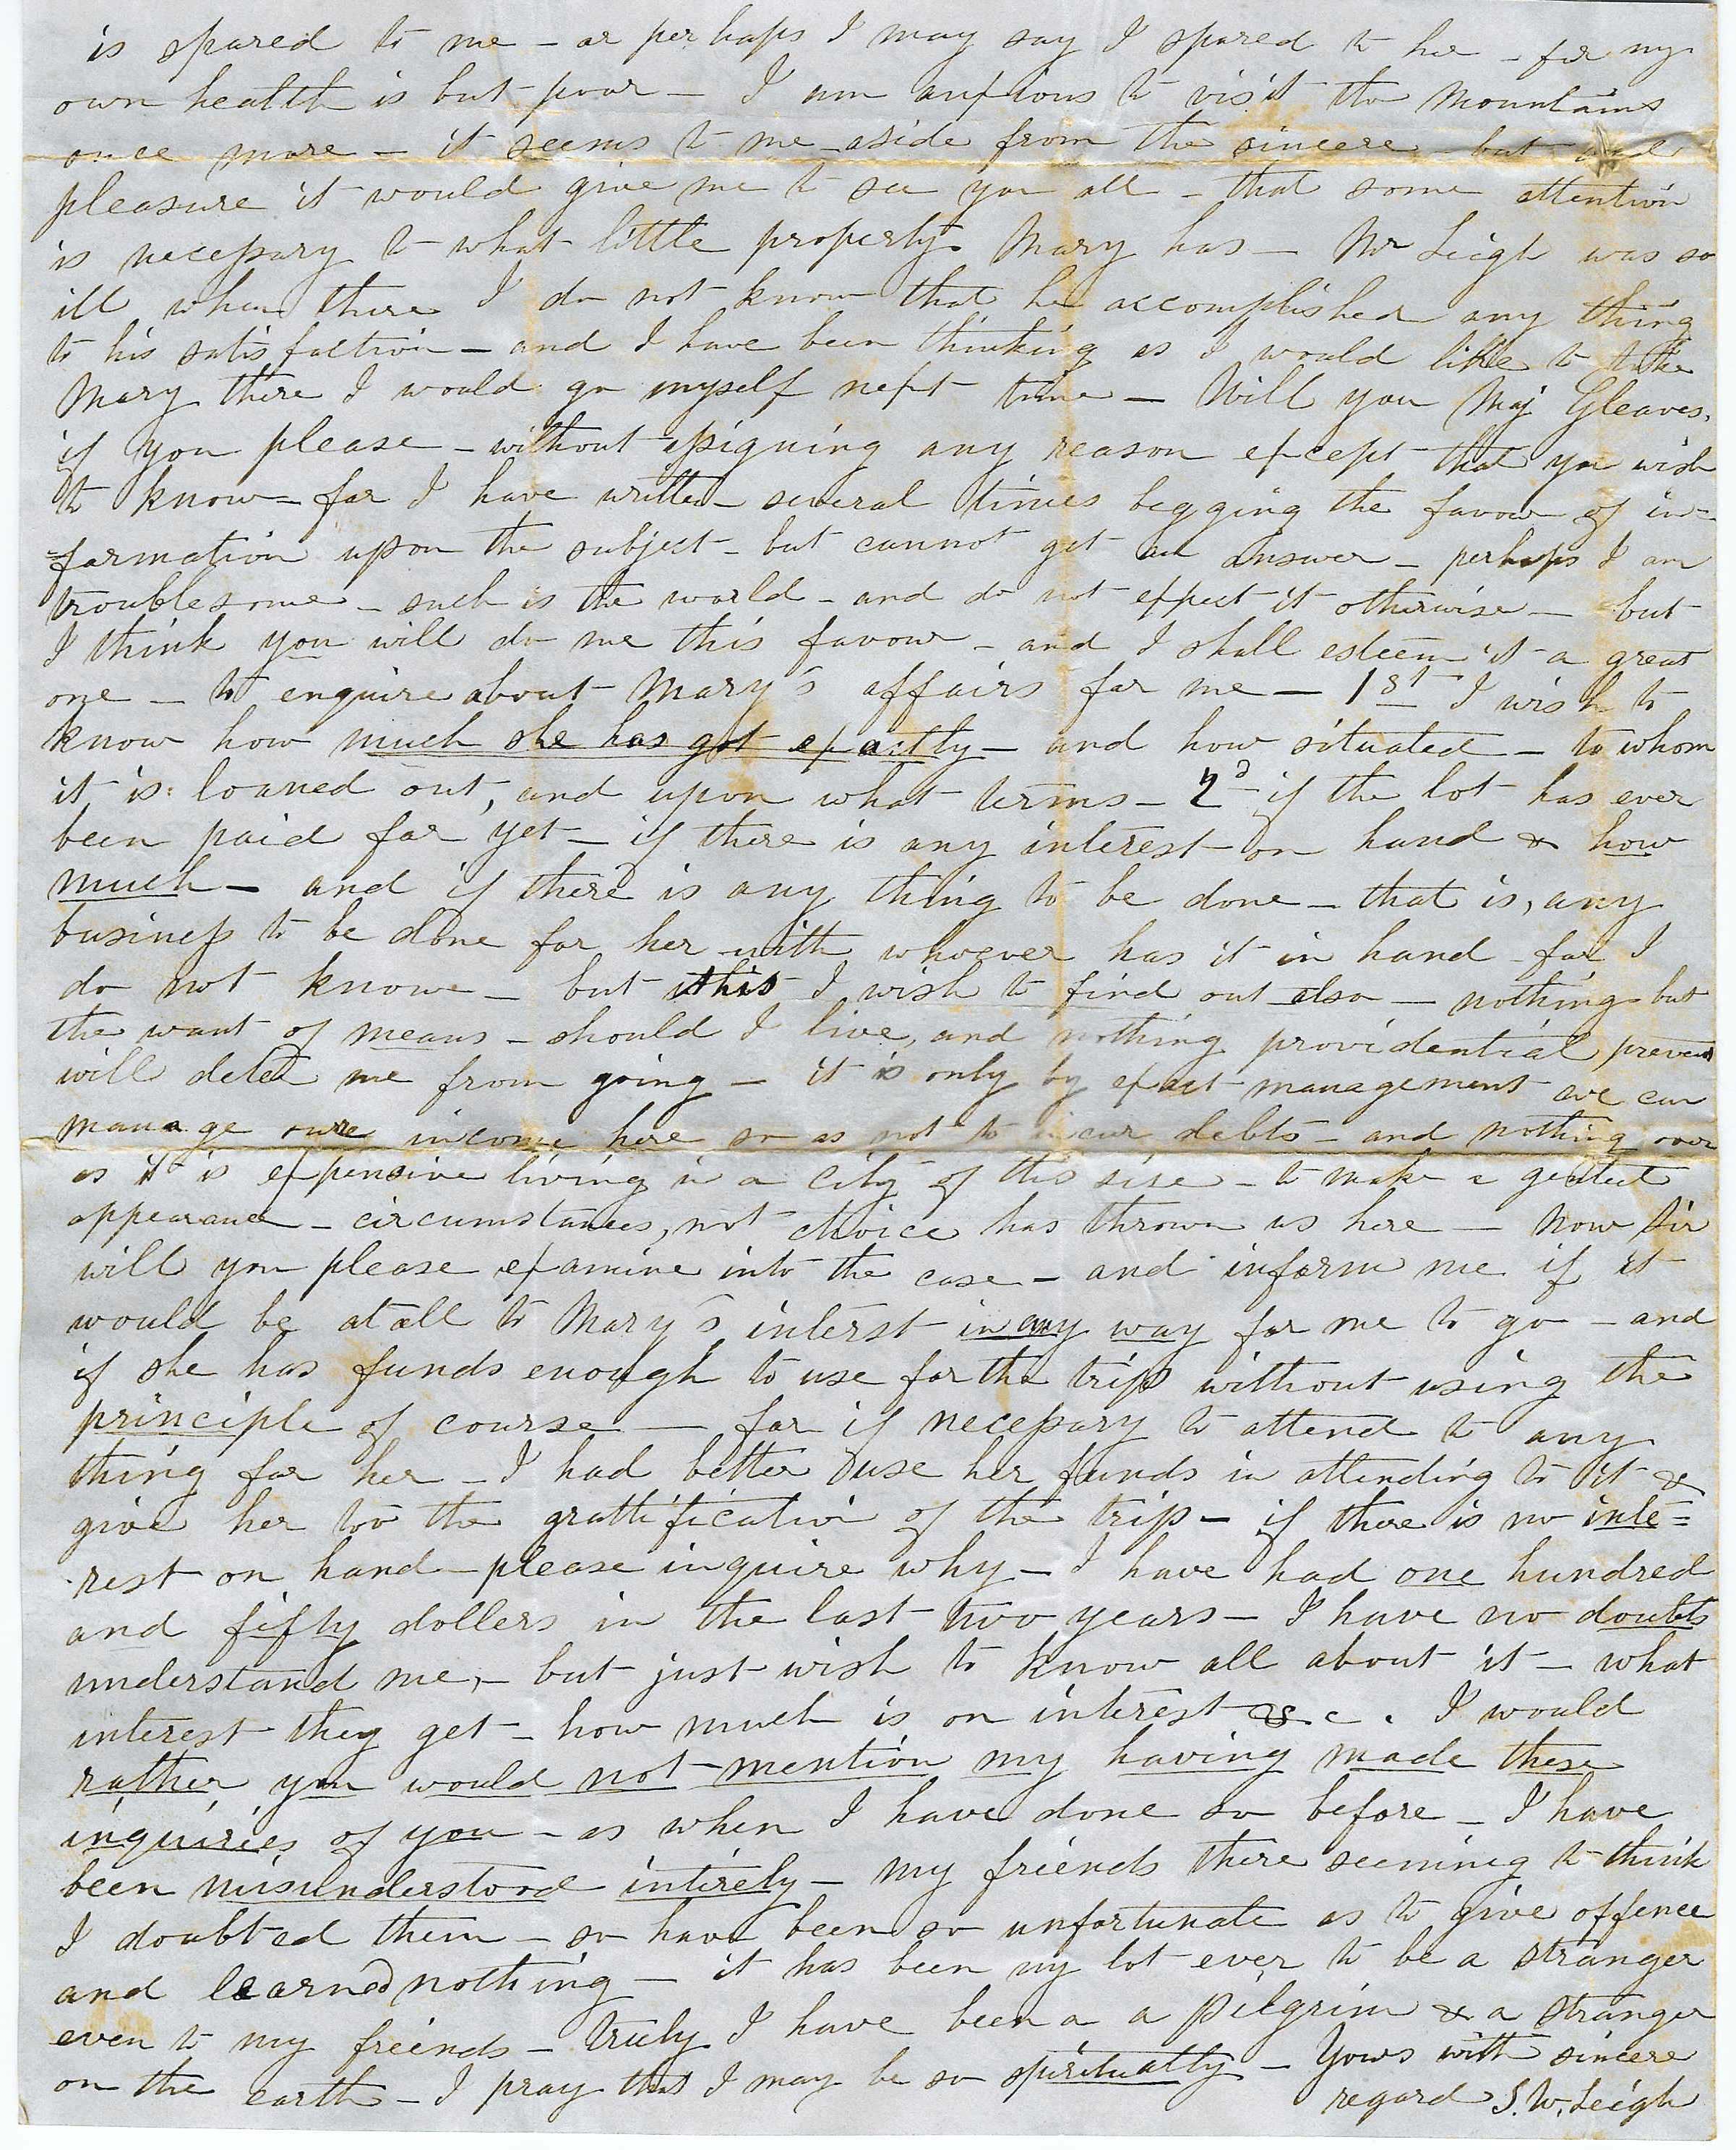 is spared to me – or perhaps I may say I spared to her – for my
own health is but poor – I am anxious to visit the Mountains
once more – it seems to me aside from the sincere – but sad
pleasure it would give me to see you all – that some attention
is necessary to what little property Mary has – Mr Leigh was so
ill when there I do not know that he accomplished any thing
to his satisfaction – and I have been thinking as I would like to take
Mary there I would go myself next time – Will you Maj Gleaves,
if you please – without assigning any reason except that you wish
to know – for I have written several times begging the favour of in-
=formation upon the subject – but cannot get an answer – perhaps I am
troublesome – such is the world – and do not expect it otherwise – but
I think you will do me this favour – and I shall esteem it a great
one – to enquire about Mary's affairs for me – 1st I wish to
know how much she has got exactly – and how situated – to whom
it is loaned out, and upon what terms – 2d if the lot has ever
been paid for yet – if there is any interest on hand & how
much – and if there is any thing to be done – that is, any
business to be done for her with whoever has it in hand – for I
do not know – but this I wish to find out also – nothing but
the want of means – should I live, and nothing providential prevent
will deter me from going – it is only by exact management we can
manage our income here so as not to incur debts – and nothing over
as it is expensive living in a city of this size – to make a genteel
appearance – circumstances, not choice has thrown us here – Now Sir
will you please examine into the case – and inform me if it
would be at all to Mary's interst in any way for me to go – and
if she has funds enough to use for the trip without using the
principle of course – for if necessary to attend to any
thing for her – I had better use her funds in attending to it &
give her too the grattification of the trip – if there is no inte=
rest on hand – please inquire why – I have had one hundred
and fifty dollers in the last two years – I have no doubts
understand me, – but just wish to know all about it – what
interest they get – how much is on interest &c. I would
rather you would not mention my having made these
inquiries of you – as when I have done so before – I have
been misunderstood intirely – my friends there seeming to think
I doubted them – so have been so unfortunate as to give offence
and learned nothing – it has been my lot ever to be a stranger
even to my friends – truly I have been a a Pilgrim & a stranger
on the earth – I pray that I may be so spiritually – Yours with sincere
regard S. W. Leigh